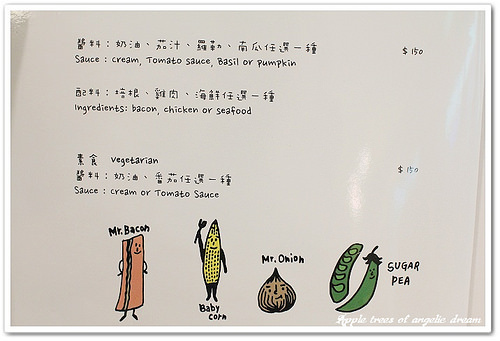 醬料：奶油、茄汁、羅勒、南瓜任選一種 $150
Sauce : cream, Tomato sauce, Basil or pumpkin
配料：培根、雞肉、海鮮任選一種
Ingredients: bacon, chicken or seafood
素食 vegetarian $150
醬料：奶油、番茄任選一種
Sauce : cream or Tomato Sauce
Mr. Bacon
Baby
corn
Mr. Onion
SUGAR
PEA
Apple trees of angelic dream